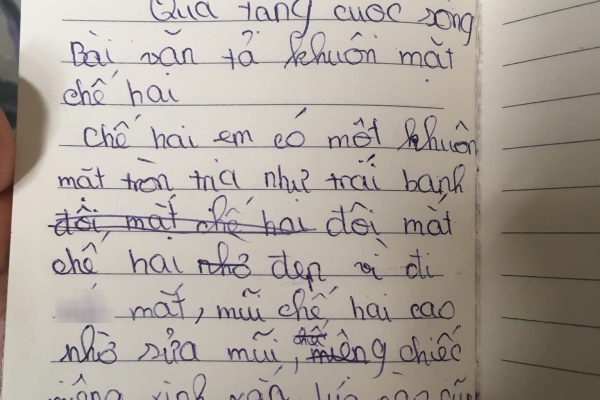 Quà tặng cuộc sống
Bài văn tả khuôn mặt
chế hai
Chế hai em có một khuôn
mặt tròn trịa như trái banh
đôi mắt chế hai đôi mắt
chế hai nhờ đẹp vì đi
mắt, mũi chế hai cao
nhờ sửa mũi, chế miệng chiếc
miệng xinh xắn lúc nào cũng